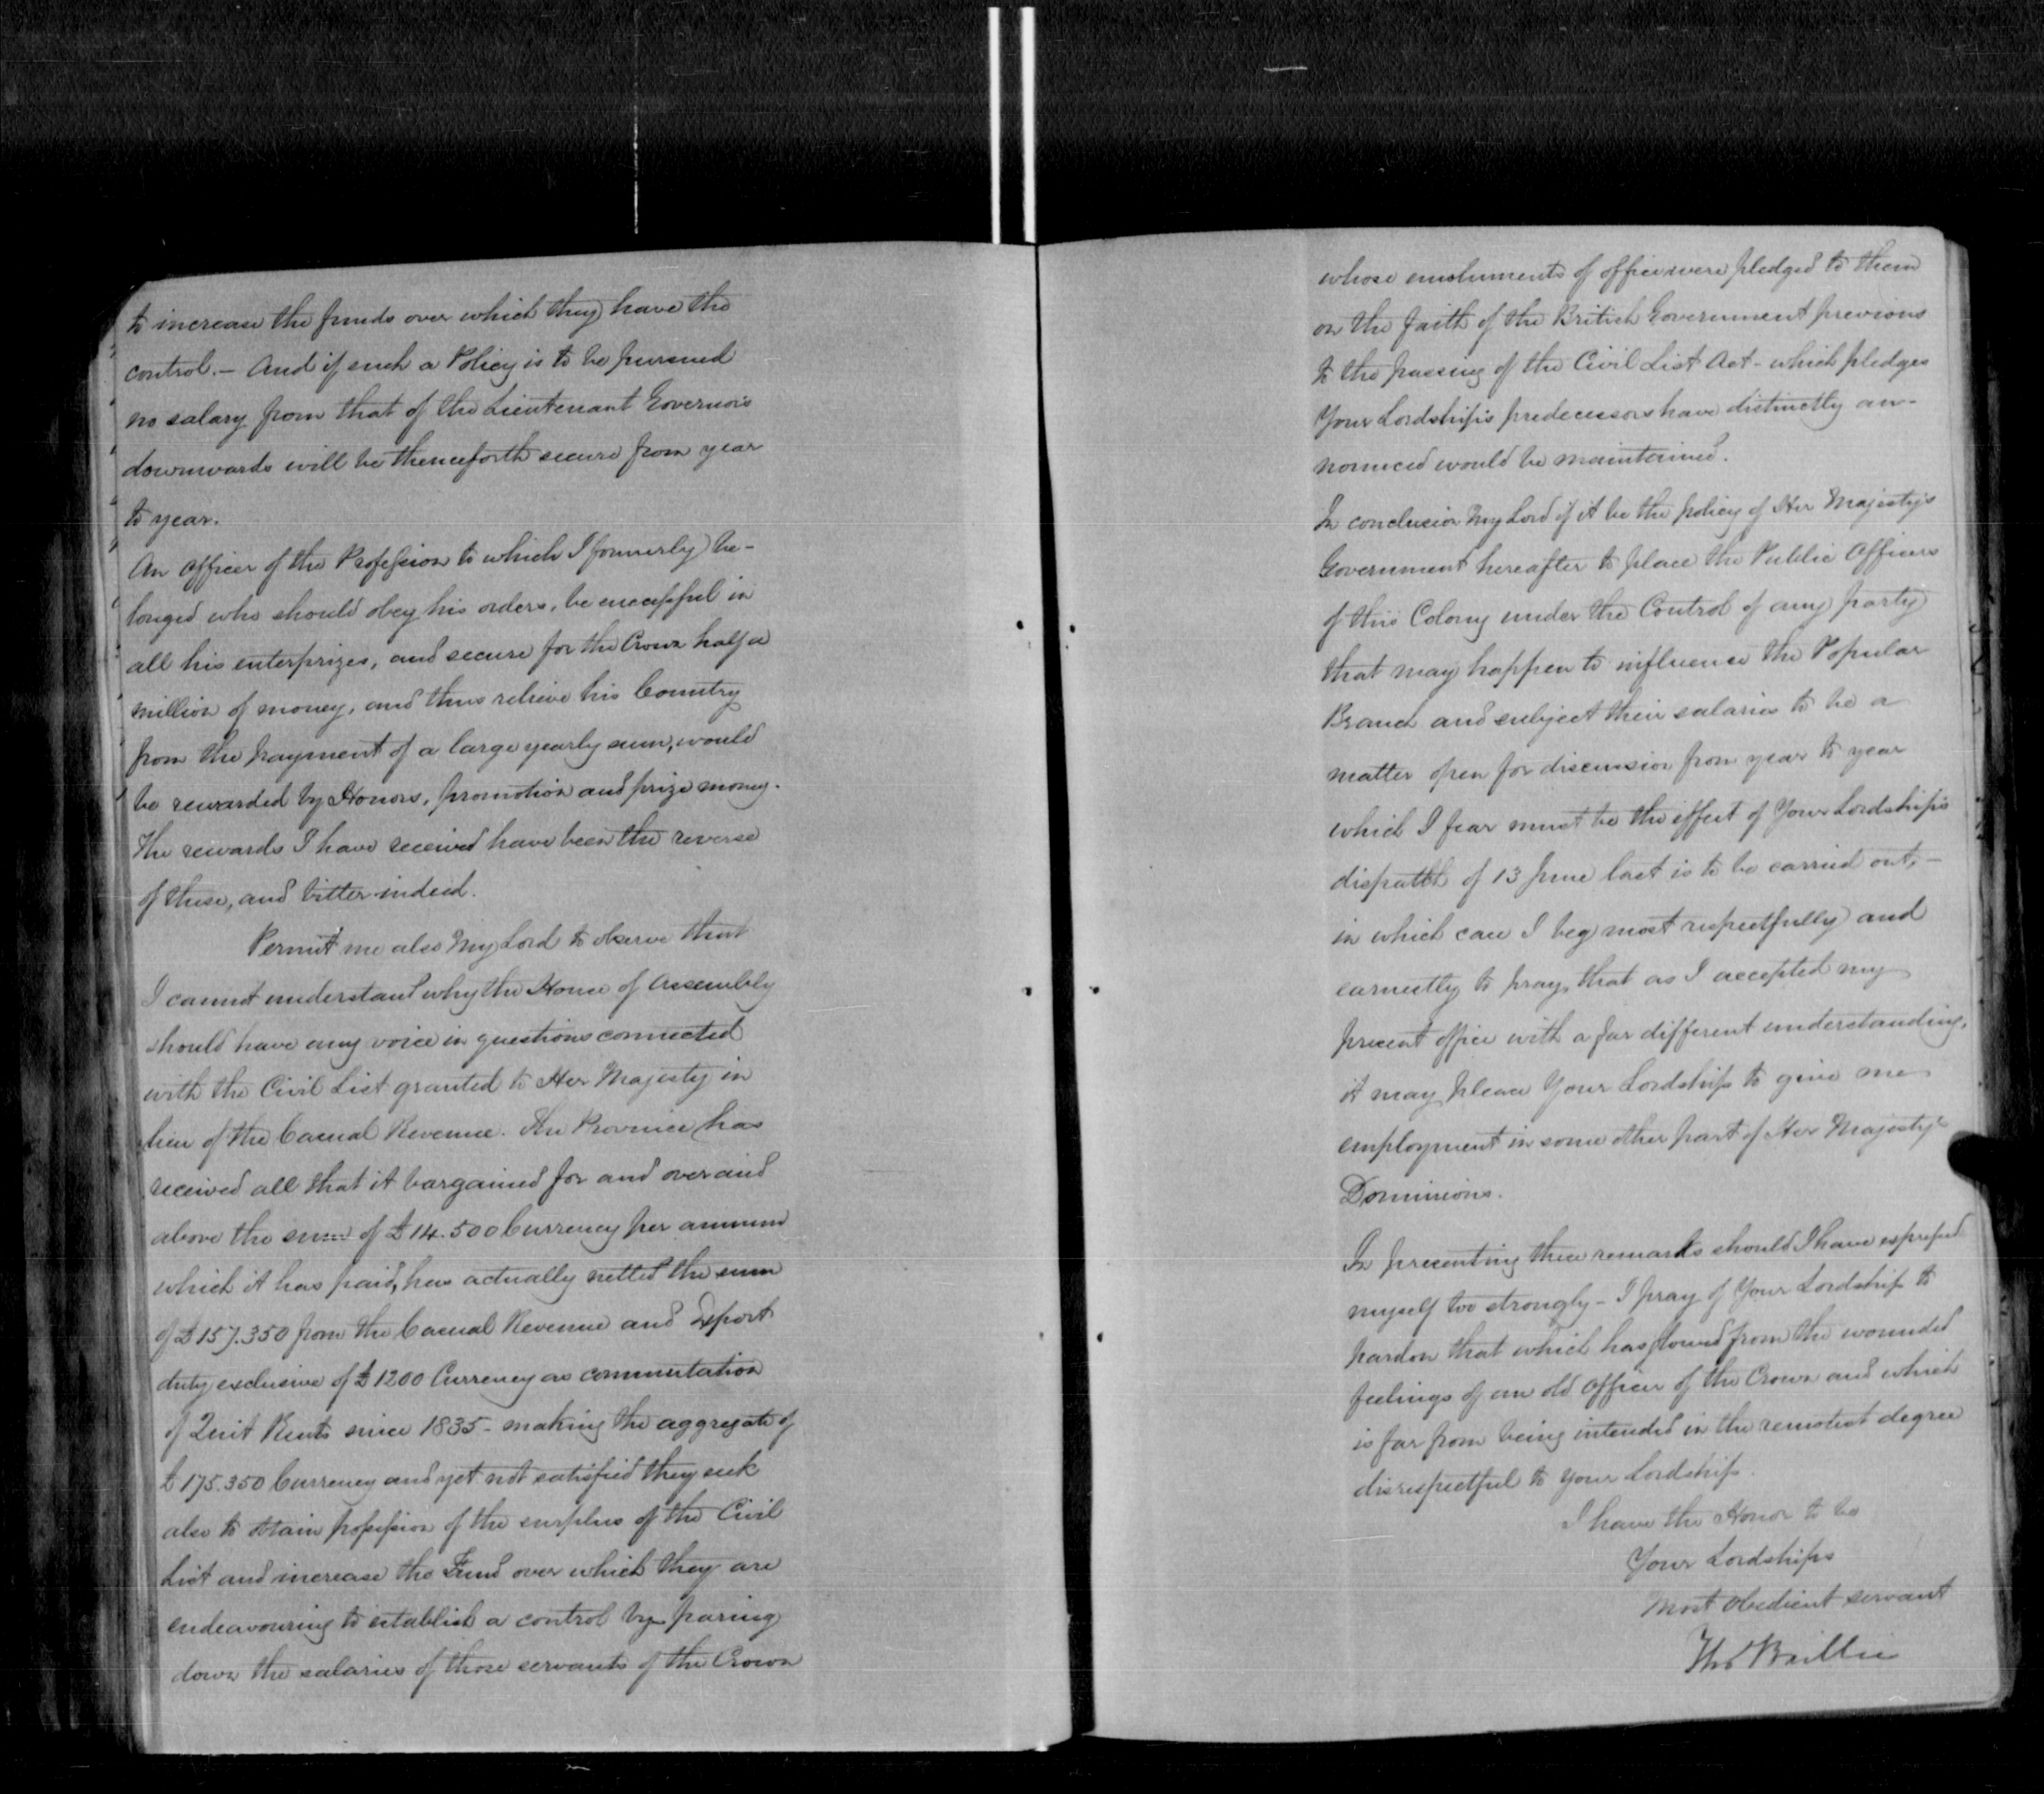 to increase the funds over which they have the
control. — And if such a Policy is to be pursued
no salary from that of the Lieutenant Governors
downwards will be thenceforth secure from year
to year.
An Officer of the Profession to which I formerly be-
longed who should obey his orders, be successful in
all his enterprizes, and secure for the Crown half a
million of money, and thus relieve his Country
from the payment of a large yearly sum, would
be rewarded by Honors, promotion and prize money.
The rewards I have received have been the reverse
of these, and bitter indeed.
Permit me also My Lord to observe that
I cannot understand why the House of Assembly
should have any voice in questions connected
with the Civil List granted to Her Majesty in
lieu of the Casual Revenue. The Province has
received all that it bargained for and over and
above the sum of £14.500 Currency per annum
which it has paid, has actually netted the sum
of £157.350 from the Casual Revenue and Export
duty exclusive of £1200 Currency as commutation
of Quit Rents since 1835 - making the aggregate of
£175.350 Currency and yet not satisfied they seek
also to obtain possession of the surplus of the Civil
List and increase the Fund over which they are
endeavouring to establish a control by paring
down the salaries of those servants of the Crown
whose emoluments of office were pledged to them
on the faith of the British Government previous
to the passing of the Civil List Act - which pledges
Your Lordship's predecessors have distinctly an-
nounced would be maintained.
In conclusion My Lord if it be the policy of Her Majesty's
Government hereafter to place the Public Officers
of this Colony under the Control of any party
that may happen to influence the Popular
Branch and subject their salaries to be a
matter open for discussion from year to year
which I fear must be the effect of Your Lordship's
dispatch of 13 June last is to be carried out, —
in which case I beg most respectfully and
earnestly to pray, that as I accepted my
present office with a far different understanding,
it may please Your Lordship to give me
employment in some other part of Her Majesty's
Dominions.
In presenting these remarks should I have expressed
myself too strongly - I pray of Your Lordship to
pardon that which has flowed from the wounded
feelings of an old Officer of the Crown and which
is far from being intended in the remotest degree
disrespectful to your Lordship.
I have the Honor to be
Your Lordships
Most Obedient servant
Thos Baillie